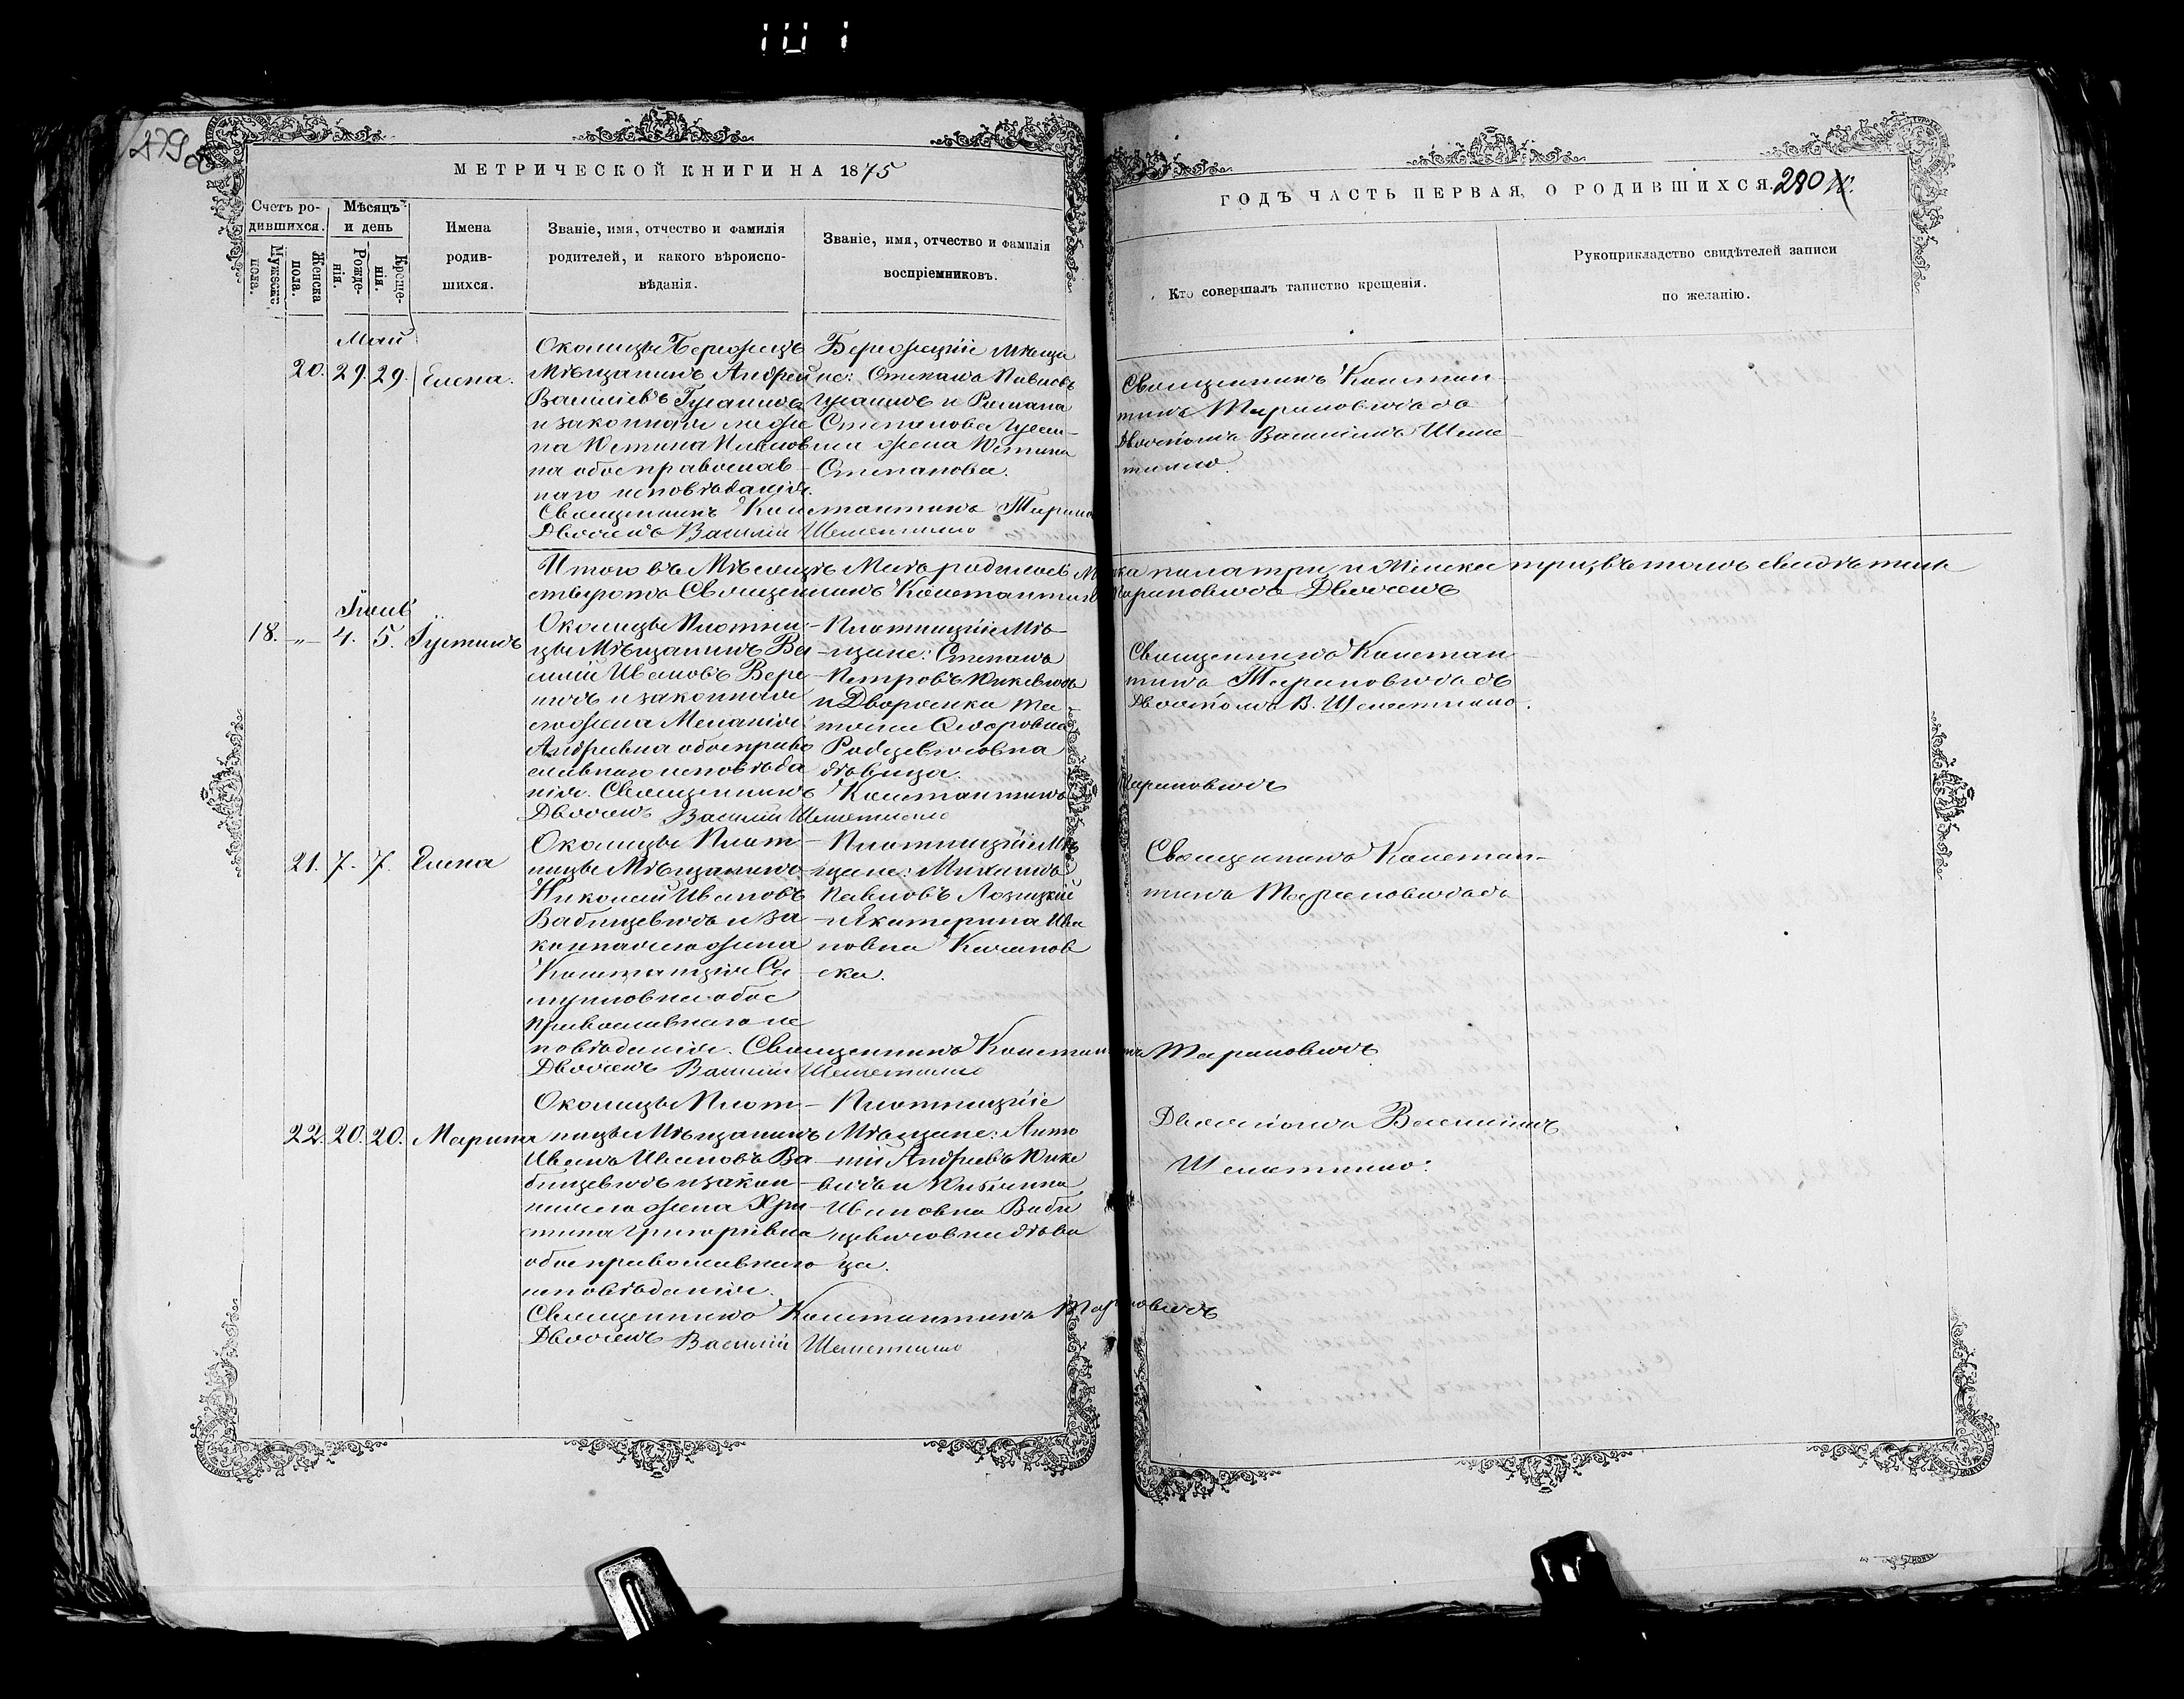 101
279
МЕТРИЧЕСКОЙ КНИГИ НА 1875
ГОДЪ ЧАСТЬ ПЕРВАЯ, О РОДИВШИХСЯ. 280
Счетъ ро-
дившихся.
Мужеска
пола.
Женска
пола.
Мѣсяцъ
и день
Рожде-
нія.
Креще-
нія.
Имена
родив-
шихся.
Званіе, имя, отчество и фамилія
родителей, и какого вѣроиспо-
вѣданія.
Званіе, имя, отчество и фамилія
воспріемниковъ.
Кто совершалъ таинство крещенія.
Рукоприкладство свидѣтелей записи
по желанію.
Май
20. 29. 29. Елена.
Околицы
Мѣщанинъ Андрей
Василіевъ
и законная
на Устина
на обое православ-
наго исповѣданія.
Священникъ Константинъ
Дьячекъ Василій Шеметилло
мѣща
не: Степанъ Павловъ
и Романа
Степанова
жена Устина
Степанова.
Священникъ Констан-
тинъ Тарановичъ съ
Дьячкомъ Василіемъ Шеме-
тилло.
Итого въ Мѣсяцѣ Маѣ родилось
пола три, и Женска три, въ томъ свидѣтель
ствуютъ Священникъ Константинъ Тарановичъ Дьячекъ
Іюнь
18. „ 4. 5. Іустинъ
Околицы Плотни-
цы Мѣщанинъ Ва
силій Ивановъ
и законная
его жена Меланія
Андреевна обое право
славнаго исповѣда
нія. Священникъ Константинъ Тарановичъ
Дьячекъ Василій Шеметилло
Плотницкіе Мѣ-
щане: Степанъ
Петровъ Юкевичъ
и Дворянка
Ѳедоровна
Родцевичовна
дѣвица.
Священникъ Констан
тинъ Тарановичъ съ
Дьячкомъ В. Шеметилло.
21. 7. 7. Елена
Околицы Плот-
ницы Мѣщанинъ
Николай Ивановъ
Бабицевичъ и за
конная его жена
Констанція Са
муиловна обое
православнаго ис
повѣданія. Священникъ Константинъ Тарановичъ
Дьячекъ Василій Шеметилло
Плотницкіе Мѣ
щане: Михаилъ
Павловъ Лозицкій
и Екатерина Ива
новна
ска.
Священникъ Констан-
тинъ Тарановичъ съ
Дьячкомъ Василіемъ
Шеметилло.
22. 20. 20. Марина
Околицы Плот-
ницы Мѣщанинъ
Иванъ Ивановъ Ба
бицевичъ и закон-
ная его жена Хри
стина Григоріевна
обое православнаго
исповѣданія.
Священникъ Константинъ Тарановичъ
Дьячекъ Василій Шеметилло
Плотницкіе
Мѣщане: Анто
ній Андреевъ Юке
вичъ и
Ивановна Баби
цевичовна дѣви
ца.